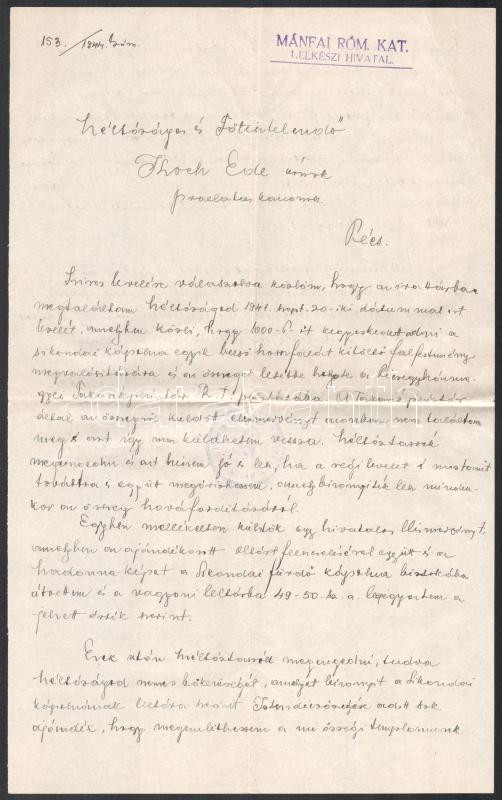 153./1944. szám.
MÁNFAI RÓM. KAT.
LELKÉSZI HIVATAL.
Méltóságos és Főtisztelendő
Thoch Ede úrnak
praelatus kanonok.
Pécs.
Szives levelére válaszolva közlöm, hogy az irattárban
megtaláltam Méltóságod 1941. szept. 20-iki dátummal írt
levelét, amelyben közli, hogy 1000-P-őt kegyeskedett adni a
sikondai kápolna egyik belső homlokát kitöltő falfestmény
megvalósítására és az összeget letétbe helyezte a
Takarékpénztár R.T. A Takarékpénztár
által az összegről küldött elismervényt azonban nem találtam
meg s azt így nem küldhetem vissza. Méltóztassék
megengedni és azt hiszem jó is lesz, ha a régi levelet s mostanit
továbbra is együtt megőrizhessem, amely bizonyíték lesz minden-
kor az összeg hováfordításáról.
Egyben mellékelten küldök egy hivatalos elismervényt,
amelyben az ajándékozott oltárt felszerelésével együtt és a
madonna képet a Sikondai fürdő kápolna birtokába
átvettem és a vagyoni leltárba 49-50. sz. a. bejegyeztem a
jelzett érték szerint.
Ezek után Méltóztassék megengedni, tudva
Méltóságod nemes bőkezűségét, amelyet bizonyít a Sikondai
kápolnának leltára szerint Istendicsőségére adott sok
ajándék, hogy megemlíthessem a mi templomunk